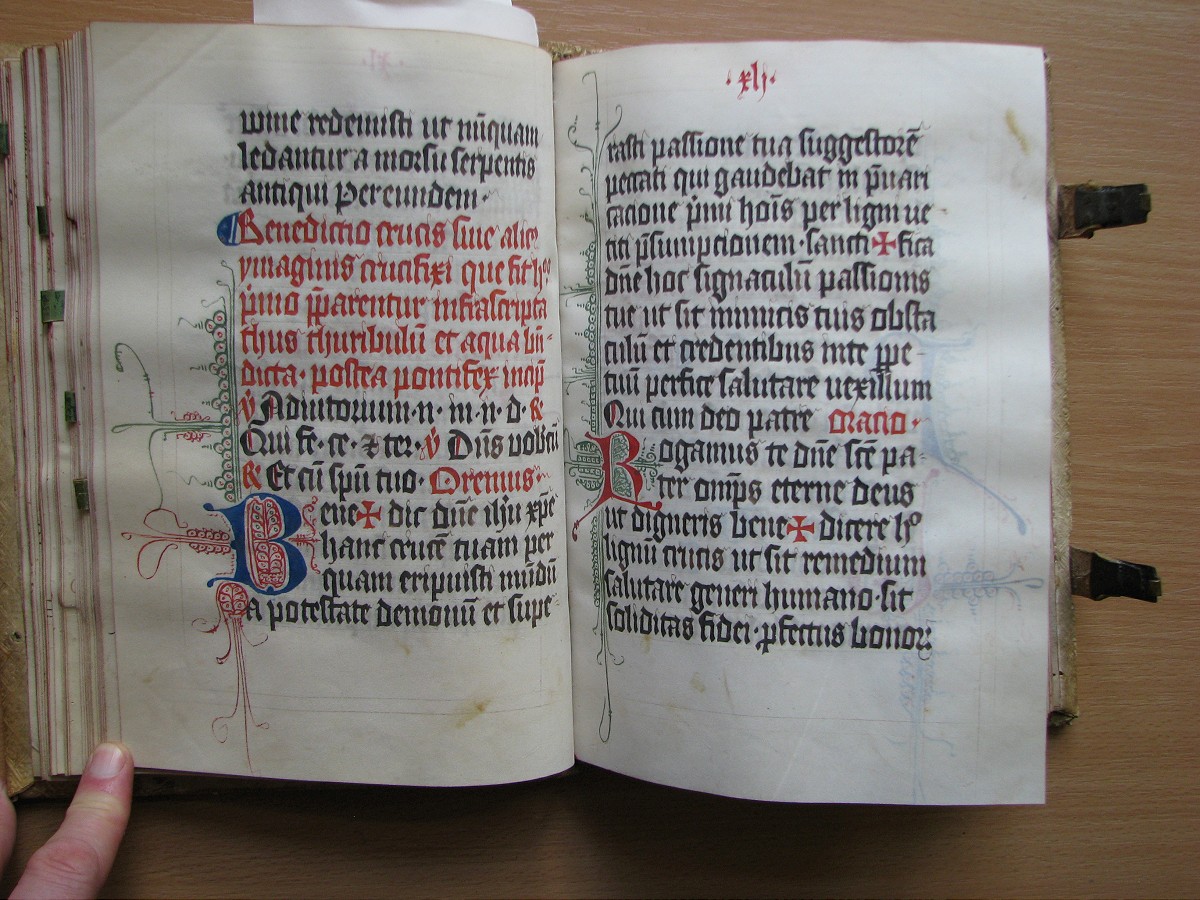 wine redemisti ut nūquam
ledantur a morsu serpentis
antiqui Per eundem ·
Benedictio crucis siue alic9
ymaginis crucifixi que fit h°
p̍mo p̄parentur infrascripta
thus thuribulū et aqua bn̄-
dicta · postea pontifex incip̄
℣ Adiutorium · n · in · n · d · ℟
Qui fe · ce · ⁊ ter · ℣ Dn̄s vobcū
℟ Et cū spū tuo · Oremus ·
Bene✠dic dn̄e ih̄u xp̄e
hanc crucē tuam per
quam eripuisti mūdū
a potestate demonū et supe
· xlj ·
rasti passione tua suggestorē
peccati qui gaudebat in p̄uari
cacione p̍mi hoīs per lignū ue
titi p̄sumpcionem · sancti✠fica
dn̄e hoc signaculū passionis
tue ut sit inimicis tuis obsta
culū et credentibus in te ꝑpe-
tuū perfice salutare uexillum
Qui cum deo patre Oratio ·
Rogamus te dn̄e scē̄ pa-
ter omp̄s eterne deus
ut digneris bene✠dicere h°
lignū crucis ut sit remedium
salutare generi humano · sit
soliditas fidei · ꝓfectus bonoꝝ